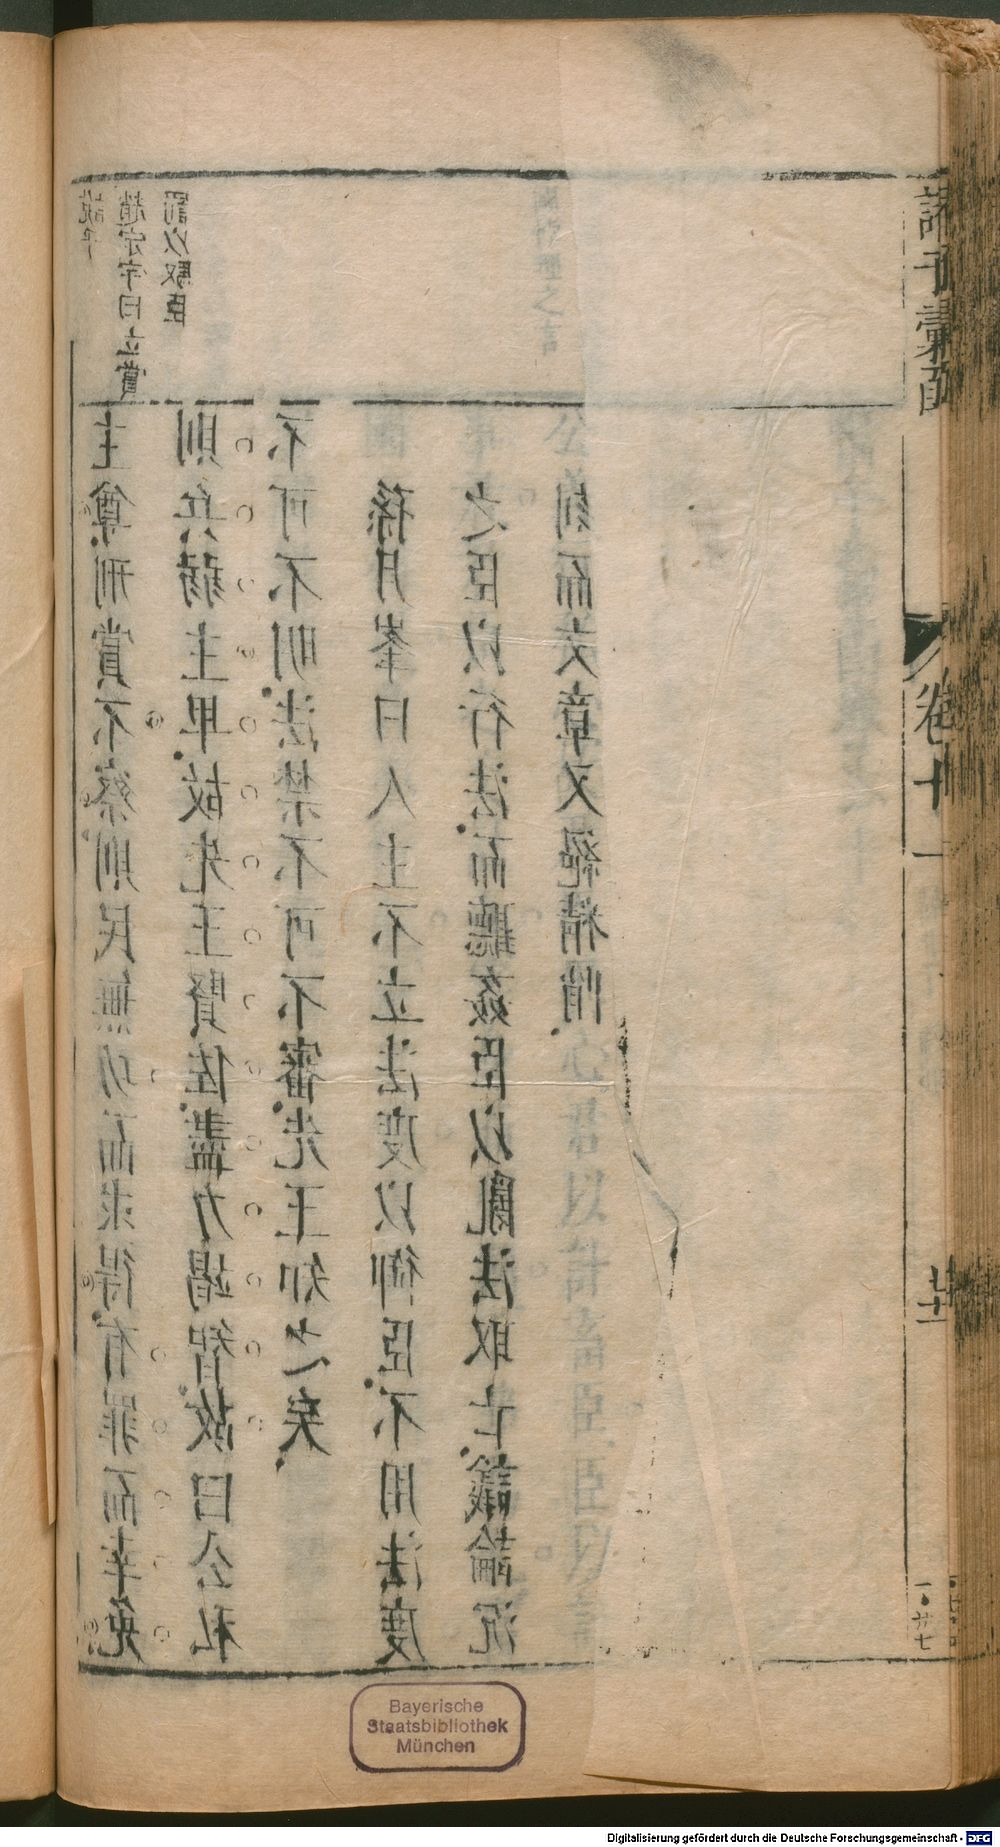 趙定宇曰立賞
罰以馭臣
主尊刑賞不察則民無功而求得有罪而幸免
則兵弱主卑故先王賢佐盡力竭智故曰公私
不可不明法禁不可不審先王知之矣
孫月峯曰人主不立法度以御臣不用法度
之臣以行法而聽姦臣以亂法取亡議論沉
到而文章又絕精悄
諸子彙函
卷十一
廿七
Bayerische
Staatsbibliothek
München
Digitalisierung gefördert durch die Deutsche Forschungsgemeinschaft - DFG